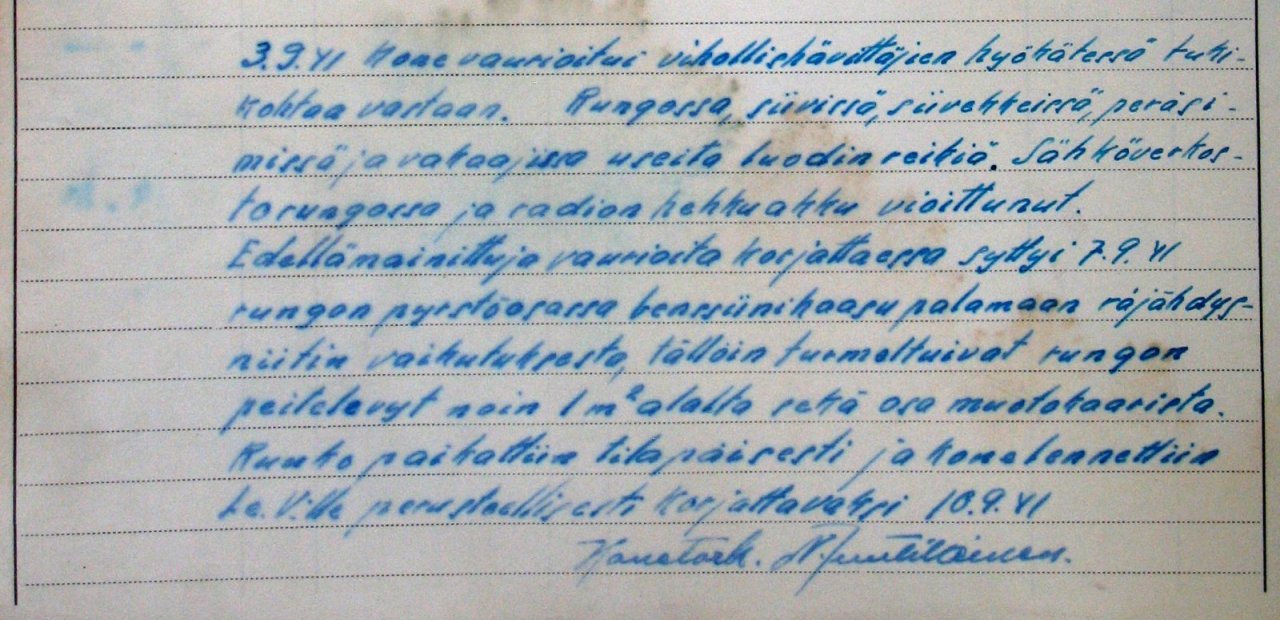 3.9.41 Kone vaurioitui vihollishävittäjien hyökätessä tuki-
kohtaa vastaan. Rungossa, siivissä, siivekkeissä, peräsi-
missä ja vakaajissa useita luodin reikiä. Sähköverkos-
to rungossa ja radion hehkuakku vioittunut.
Edellämainittuja vaurioita korjattaessa syttyi 7.9.41
rungon pyrstöosassa bensiinikaasu palamaan räjähdys-
niitin vaikutuksesta, tällöin turmeltuivat rungon
peitelevyt noin 1 m² alalta sekä osa muotokaarista.
Runko paikattiin tilapäisesti ja kone lennettiin
Le. V:lle perusteellisesti korjattavaksi 10.9.41